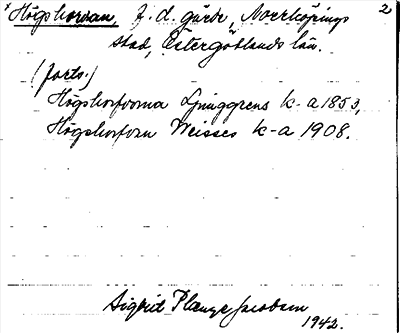 x Högstorvan, f. d. gärde, Norrköpings 2
stad, Östergötlands län.
(forts.)
Högstorforna Ljunggrens k-a 1853,
Högstorfvan Weisses k-a 1908.
Sigrid Plange Jacobson
1942.